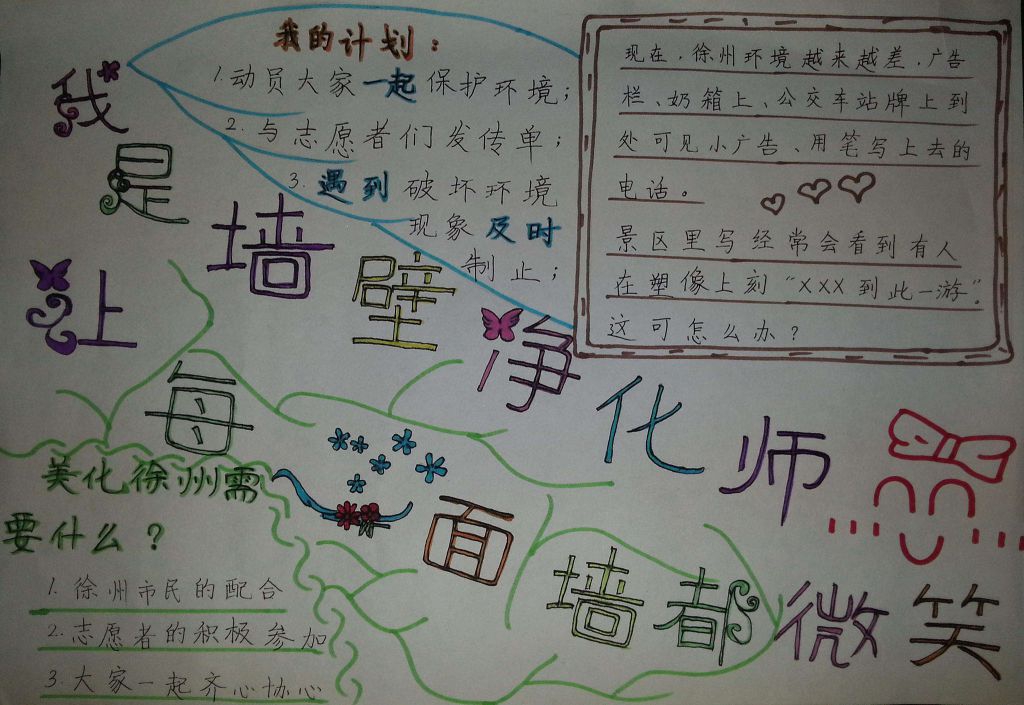 我是墙壁净化师
让每面墙都微笑
我的计划：
1.动员大家一起保护环境；
2.与志愿者们发传单；
3.遇到破坏环境
现象及时
制止；
现在，徐州环境越来越差，广告
栏、奶箱上、公交车站牌上到
处可见小广告、用笔写上去的
电话。
景区里写经常会看到有人
在塑像上刻“XXX到此一游”。
这可怎么办？
美化徐州需
要什么？
1.徐州市民的配合
2.志愿者的积极参加
3.大家一起齐心协心